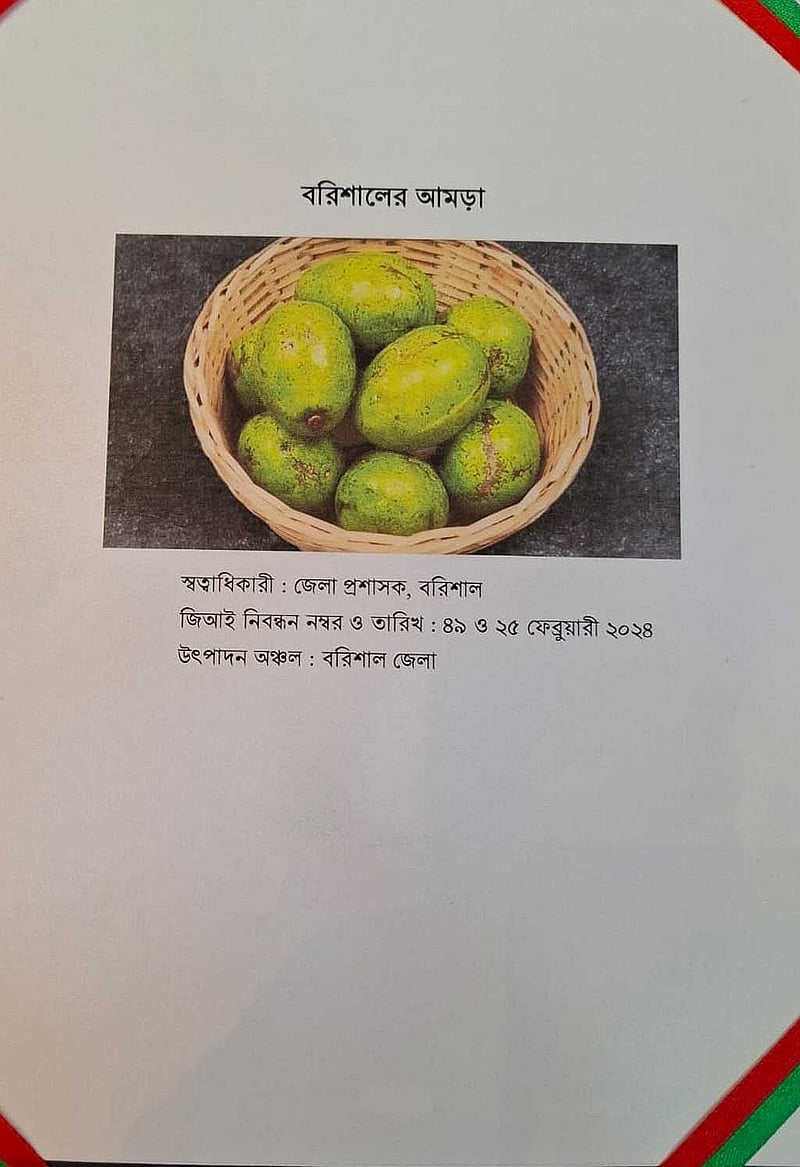 বরিশালের আমড়া
স্বত্বাধিকারী : জেলা প্রশাসক, বরিশাল
জিআই নিবন্ধন নম্বর ও তারিখ : ৪৯ ও ২৫ ফেব্রুয়ারী ২০২৪
উৎপাদন অঞ্চল : বরিশাল জেলা